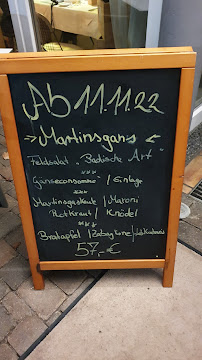 Ab 11.11.22
> Martinsgans <
Feldsalat "Badische Art"
***
Gänseconsommé / Einlage
***
Martinsganskeule / Maroni
Rotkraut / Knödel
***
Bratapfel / Zabaglione /
57,-€